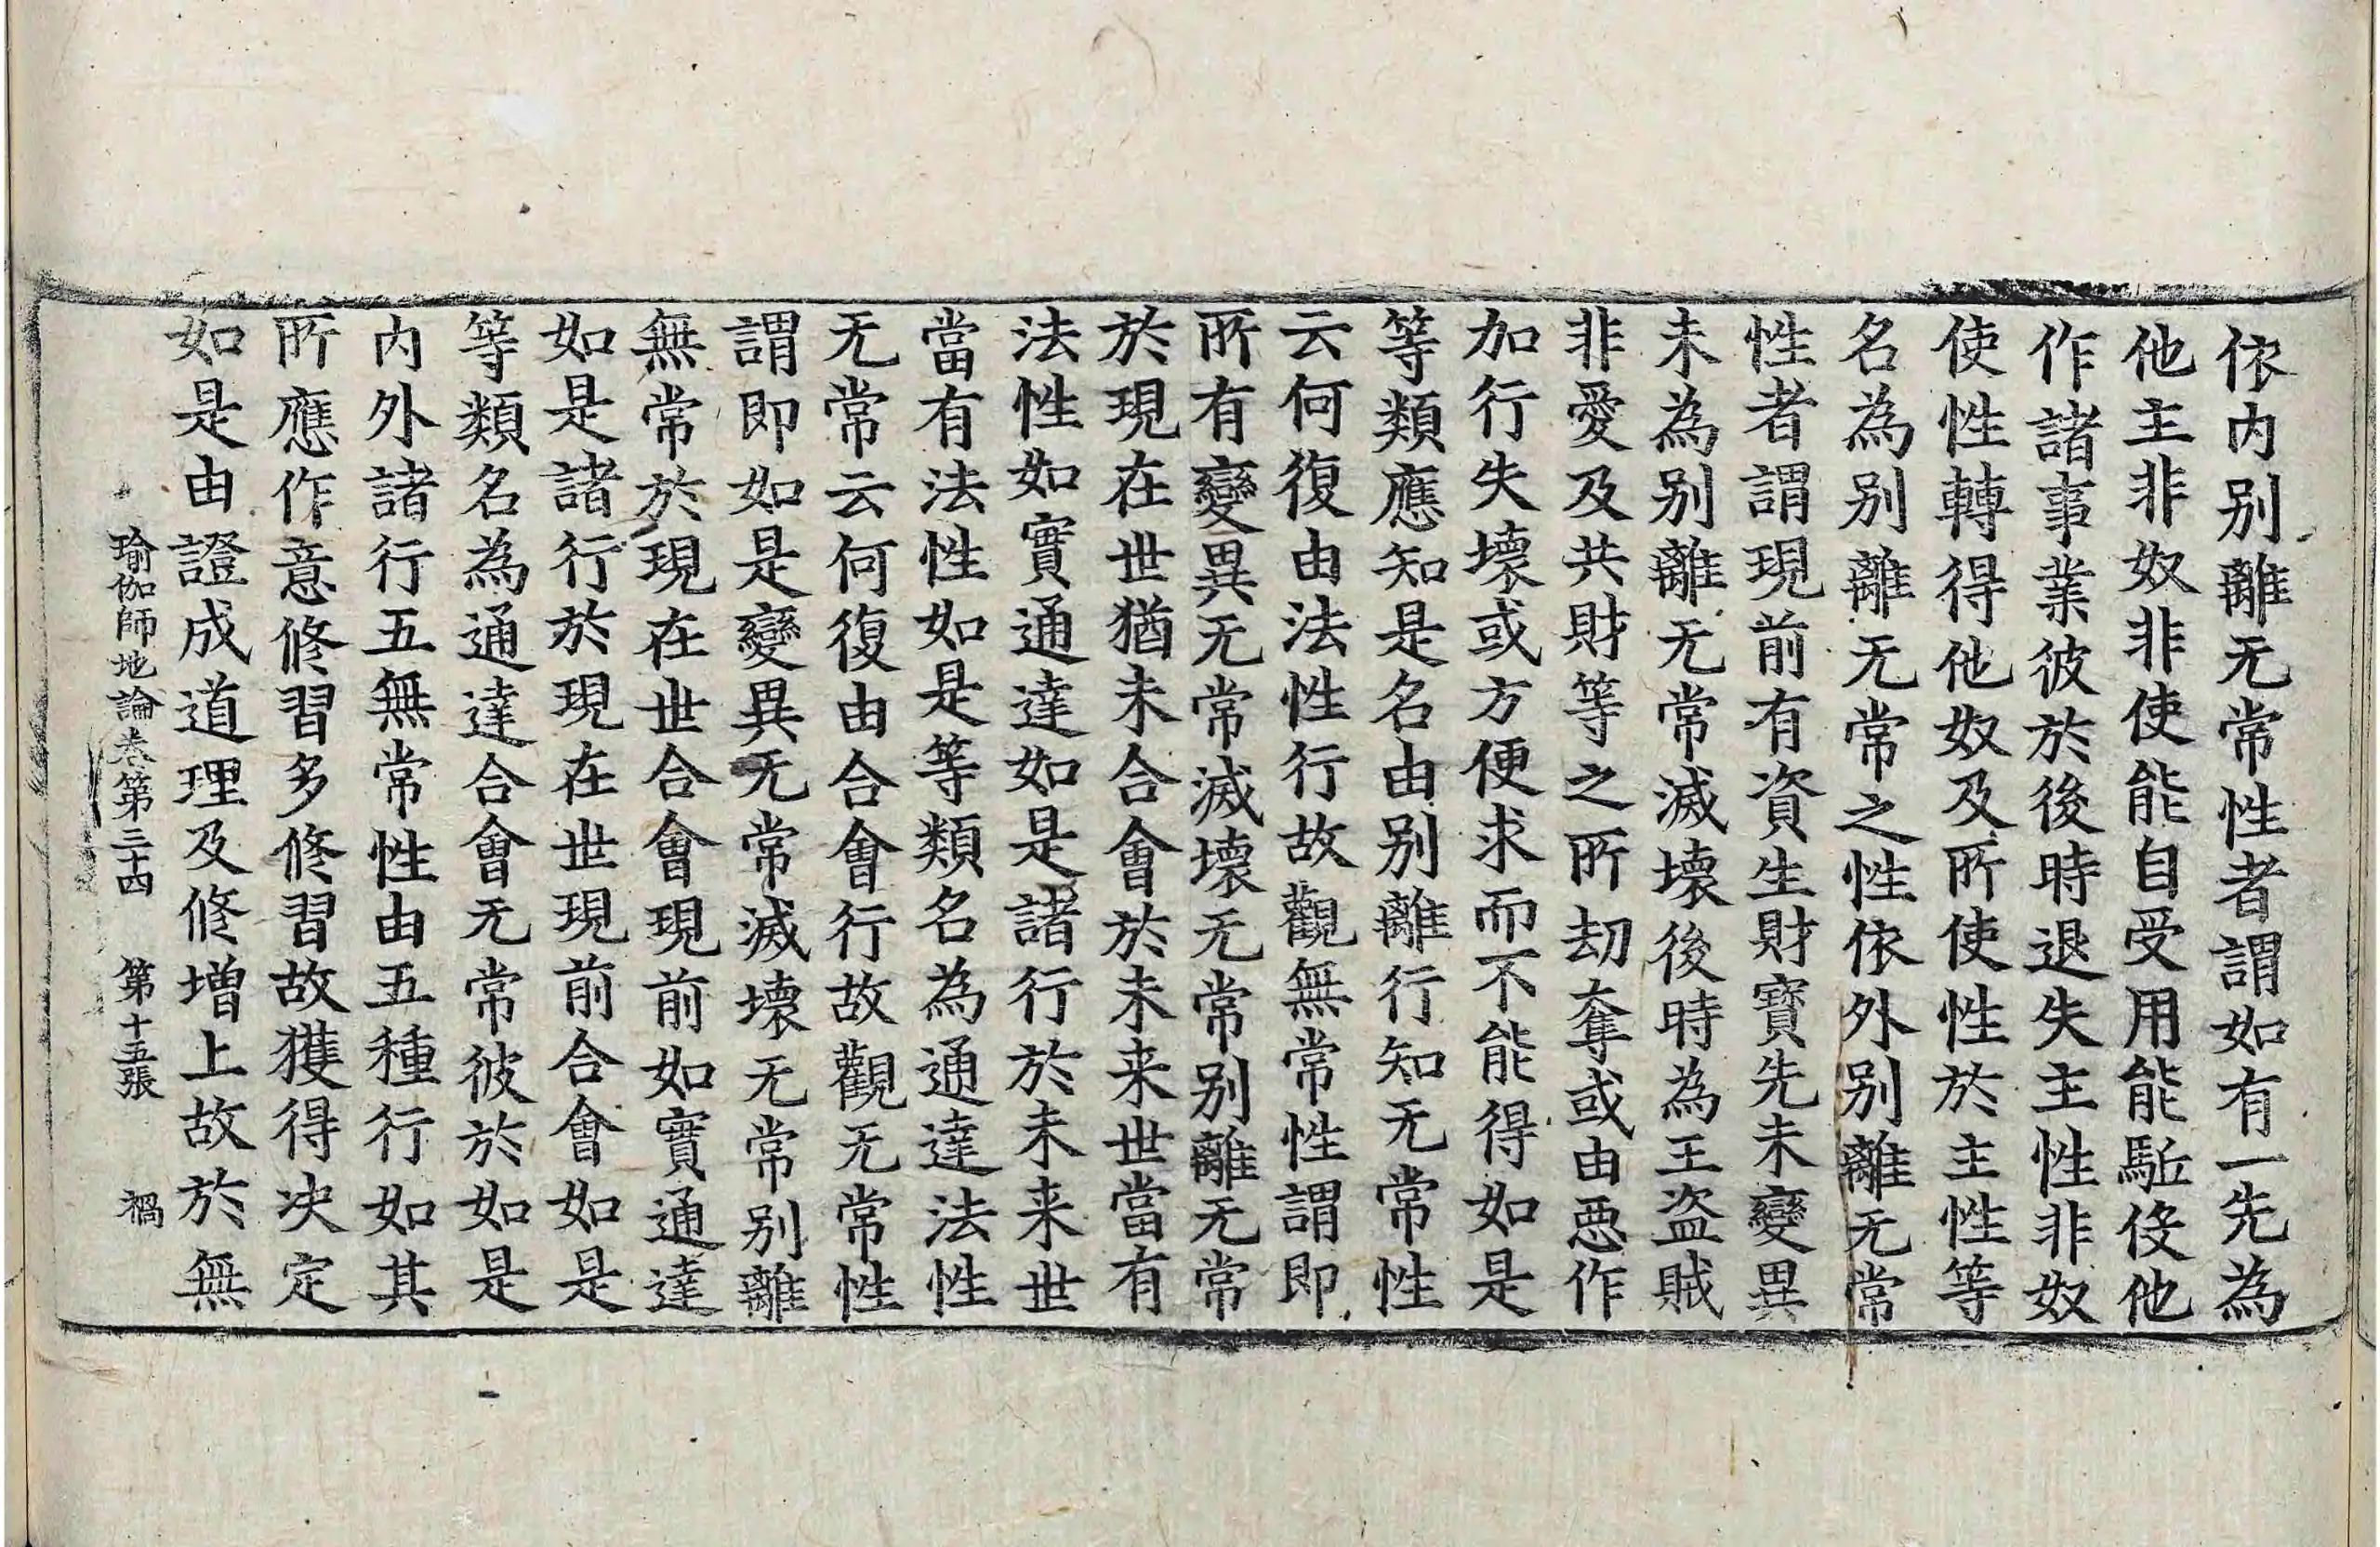 依内别離无常性者謂如有一先為
他主非奴非使能自受用能駈伇他
作諸事業彼於後時退失主性非奴
使性轉得他奴及所使性於主性等
名為别離无常之性依外别離无常
性者謂現前有資生財寶先未變異
未為别離无常滅壞後時為王盗賊
非愛及共財等之所劫奪或由惡作
加行失壞或方便求而不能得如是
等類應知是名由别離行知无常性
云何復由法性行故觀無常性謂即
所有變異无常滅壞无常别離无常
於現在世猶未合會於未来世當有
法性如實通達如是諸行於未来世
當有法性如是等類名為通達法性
无常云何復由合會行故觀无常性
謂即如是變異无常滅壞无常别離
無常於現在世合會現前如實通達
如是諸行於現在世現前合會如是
等類名為通達合會无常彼於如是
内外諸行五無常性由五種行如其
所應作意修習多修習故獲得决定
如是由證成道理及修增上故於無
瑜伽師地論卷第三十四　第十五張　禍